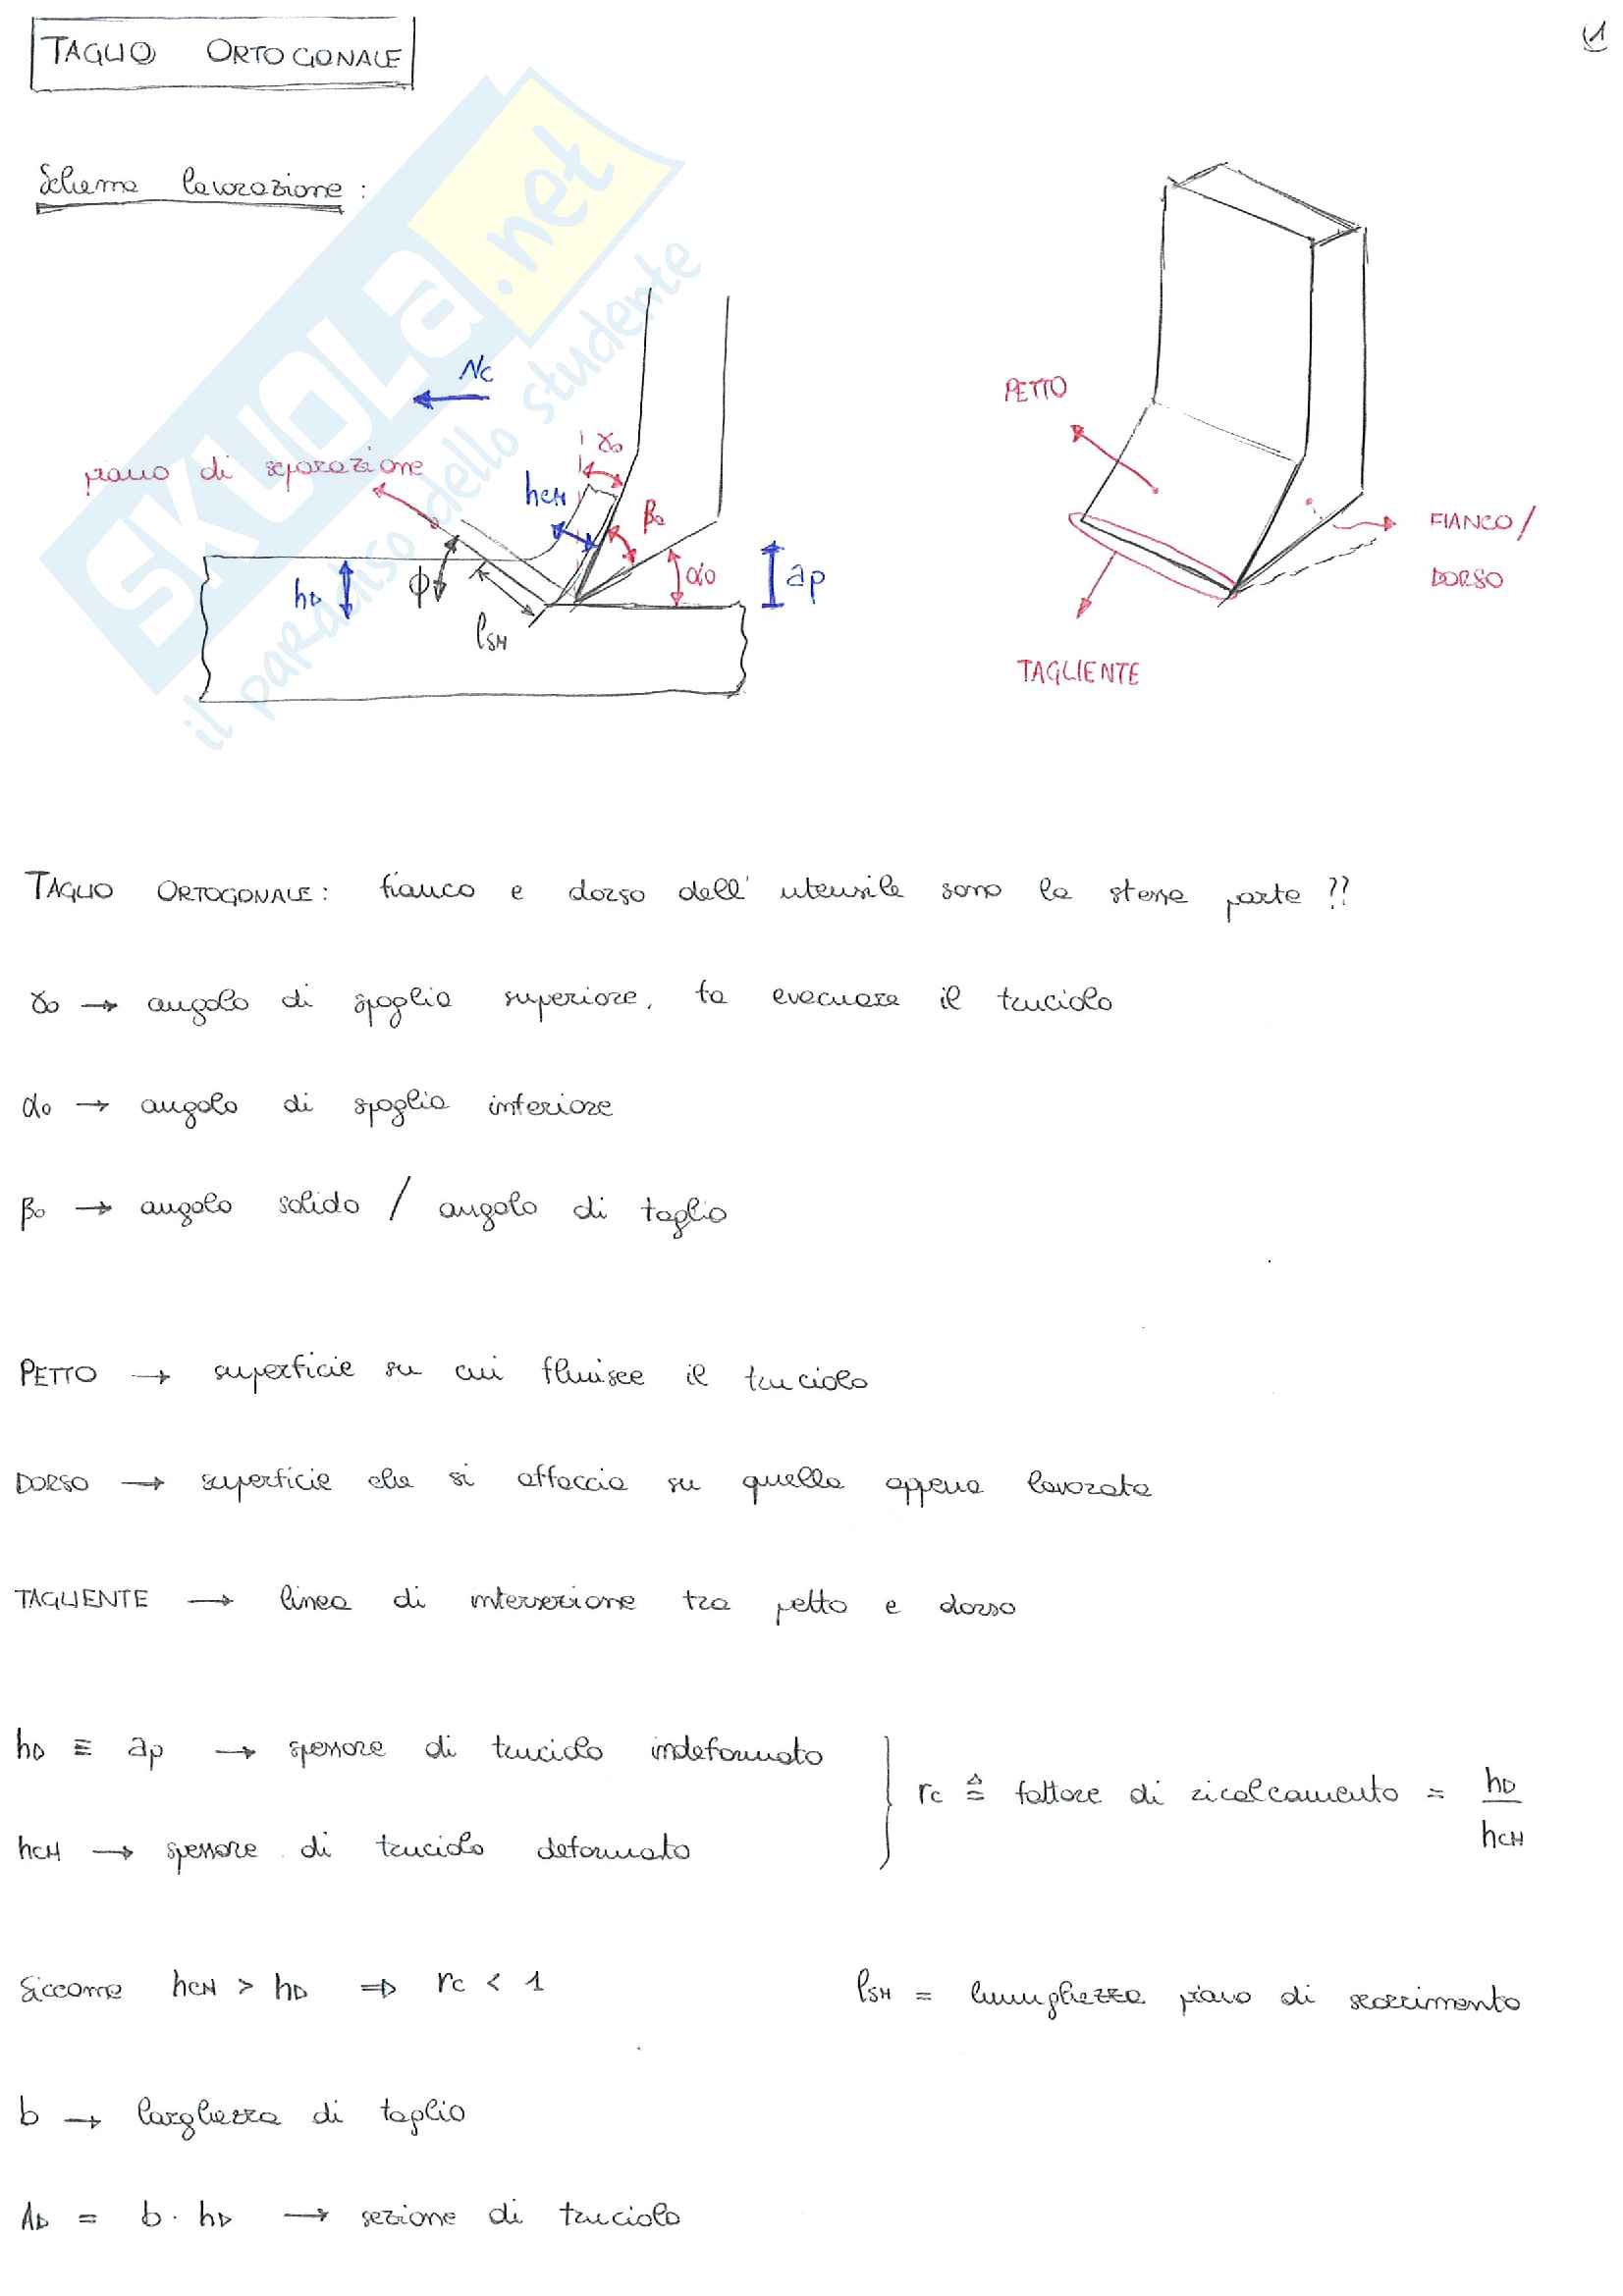 TAGLIO ORTOGONALE
1
Schema lavorazione:
SKUOLA.net
il paradiso dello studente
vc
γo
piano di separazione
hCH
βo
hD
ϕ
lSH
αo
ap
PETTO
FIANCO/
DORSO
TAGLIENTE
TAGLIO ORTOGONALE: fianco e dorso dell' utensile sono la stessa parte ??
γo → angolo di spoglia superiore, fa evacuare il truciolo
αo → angolo di spoglia inferiore
βo → angolo solido / angolo di taglio
PETTO → superficie su cui fluisce il truciolo
DORSO → superficie che si affaccia su quella appena lavorata
TAGLIENTE → linea di intersezione tra petto e dorso
hD ≡ ap → spessore di truciolo indeformato
hCH → spessore di truciolo deformato
rc ≜ fattore di ricalcamento = hD / hCH
Siccome hCH > hD ⇒ rc < 1
lSH = lunghezza piano di scorrimento
b → larghezza di taglio
AD = b · hD → sezione di truciolo